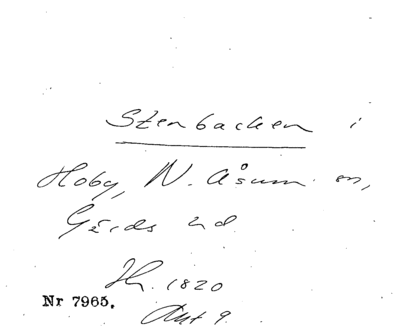 Stenbacken i
Hoby, N. Åsum sn,
Gärds hd
Ih. 1820
Nr 7965.
Akt 9